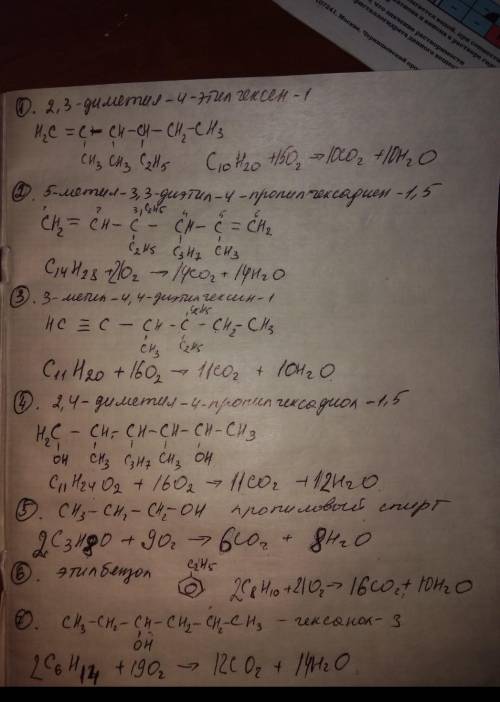 107241, Москва, Черницынский про
① 2,3-диметил-4-этилгексен-1
H₂C = C - CH - CH - CH₂ - CH₃
CH₃ CH₃ C₂H₅
C₁₀H₂₀ + 15O₂ → 10CO₂ + 10H₂O
② 5-метил-3,3-диэтил-4-пропилгексадиен-1,5
1 2 3 C₂H₅ 4 5 6
CH₂ = CH - C - CH - C = CH₂
C₂H₅ C₃H₇ CH₃
C₁₄H₂₈ + 21O₂ → 14CO₂ + 14H₂O
③ 3-метил-4,4-диэтилгексин-1
C₂H₅
HC ≡ C - CH - C - CH₂ - CH₃
CH₃ C₂H₅
C₁₁H₂₀ + 16O₂ → 11CO₂ + 10H₂O
④ 2,4-диметил-4-пропилгексадиол-1,5
H₂C - CH - CH - CH - CH - CH₃
OH CH₃ C₃H₇ CH₃ OH
C₁₁H₂₄O₂ + 16O₂ → 11CO₂ + 12H₂O
⑤ CH₃ - CH₂ - CH₂ - OH пропиловый спирт
2C₃H8O + 9O₂ → 6CO₂ + 8H₂O
⑥ этилбензол C₂H₅ 2C₈H₁₀ + 21O₂ → 16CO₂ + 10H₂O
⑦ CH₃ - CH₂ - CH - CH₂ - CH₂ - CH₃ - гексанол-3
OH
2C₆H₁₄ + 19O₂ → 12CO₂ + 14H₂O